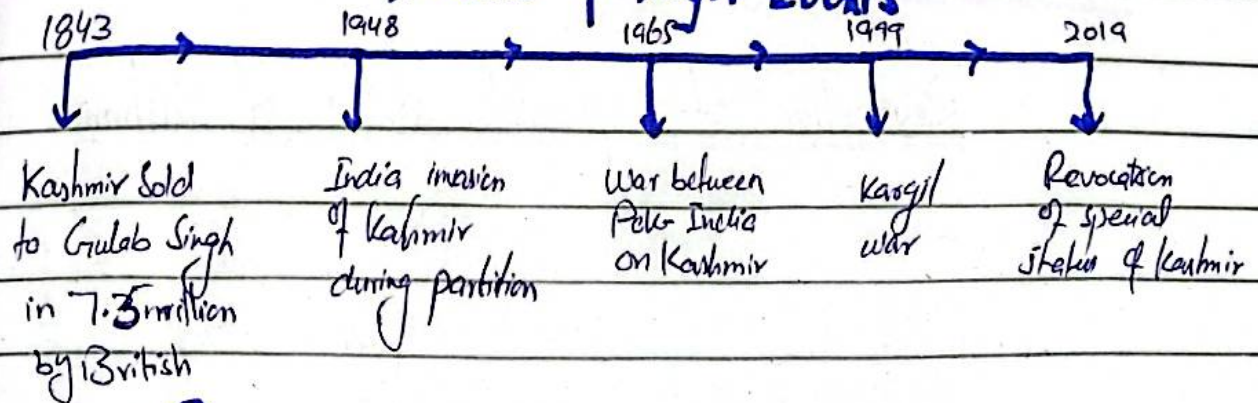 1843
1948
1965
1999
2019
Kashmir Sold
to Gulab Singh
in 7.5 million
by British
India invasion
of Kahmir
during partition
War between
Pak-India
on Kashmir
Kargil
war
Revocation
of special
status of Kashmir